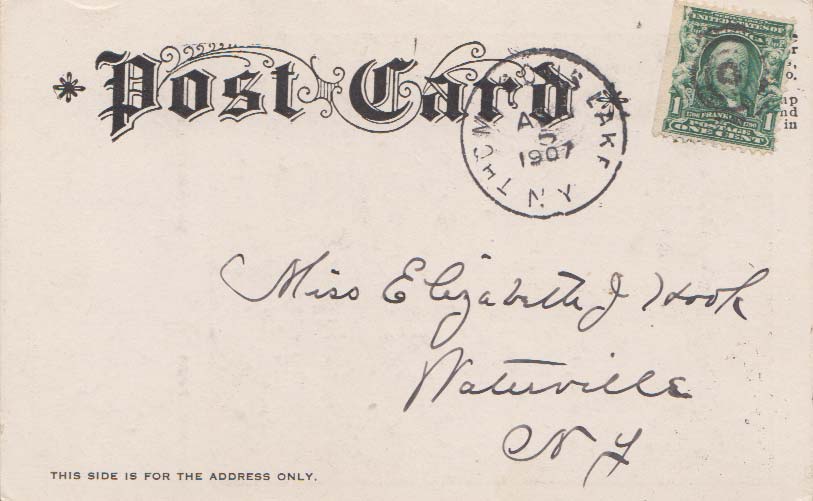 Post Card
THOMPSONS LAKE
5
1907
N Y
UNITED STATES OF
AMERICA
1 1
1706 FRANKLIN 1790
POSTAGE
ONE CENT
in
Miss Elizabeth J Hook
Waterville
N Y
THIS SIDE IS FOR THE ADDRESS ONLY.